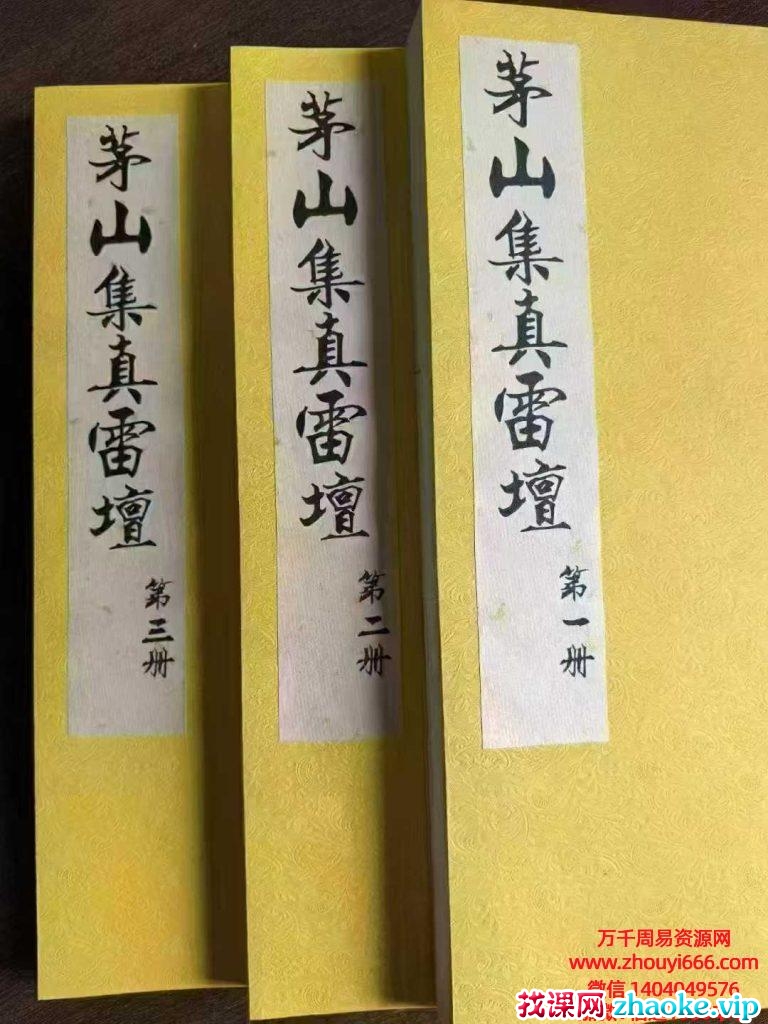 茅山集真雷壇
第一册
茅山集真雷壇
第二册
茅山集真雷壇
第三册
万千周易资源网
www.zhouyi666.com
微信 1404049576
找课网zhaoke.vip